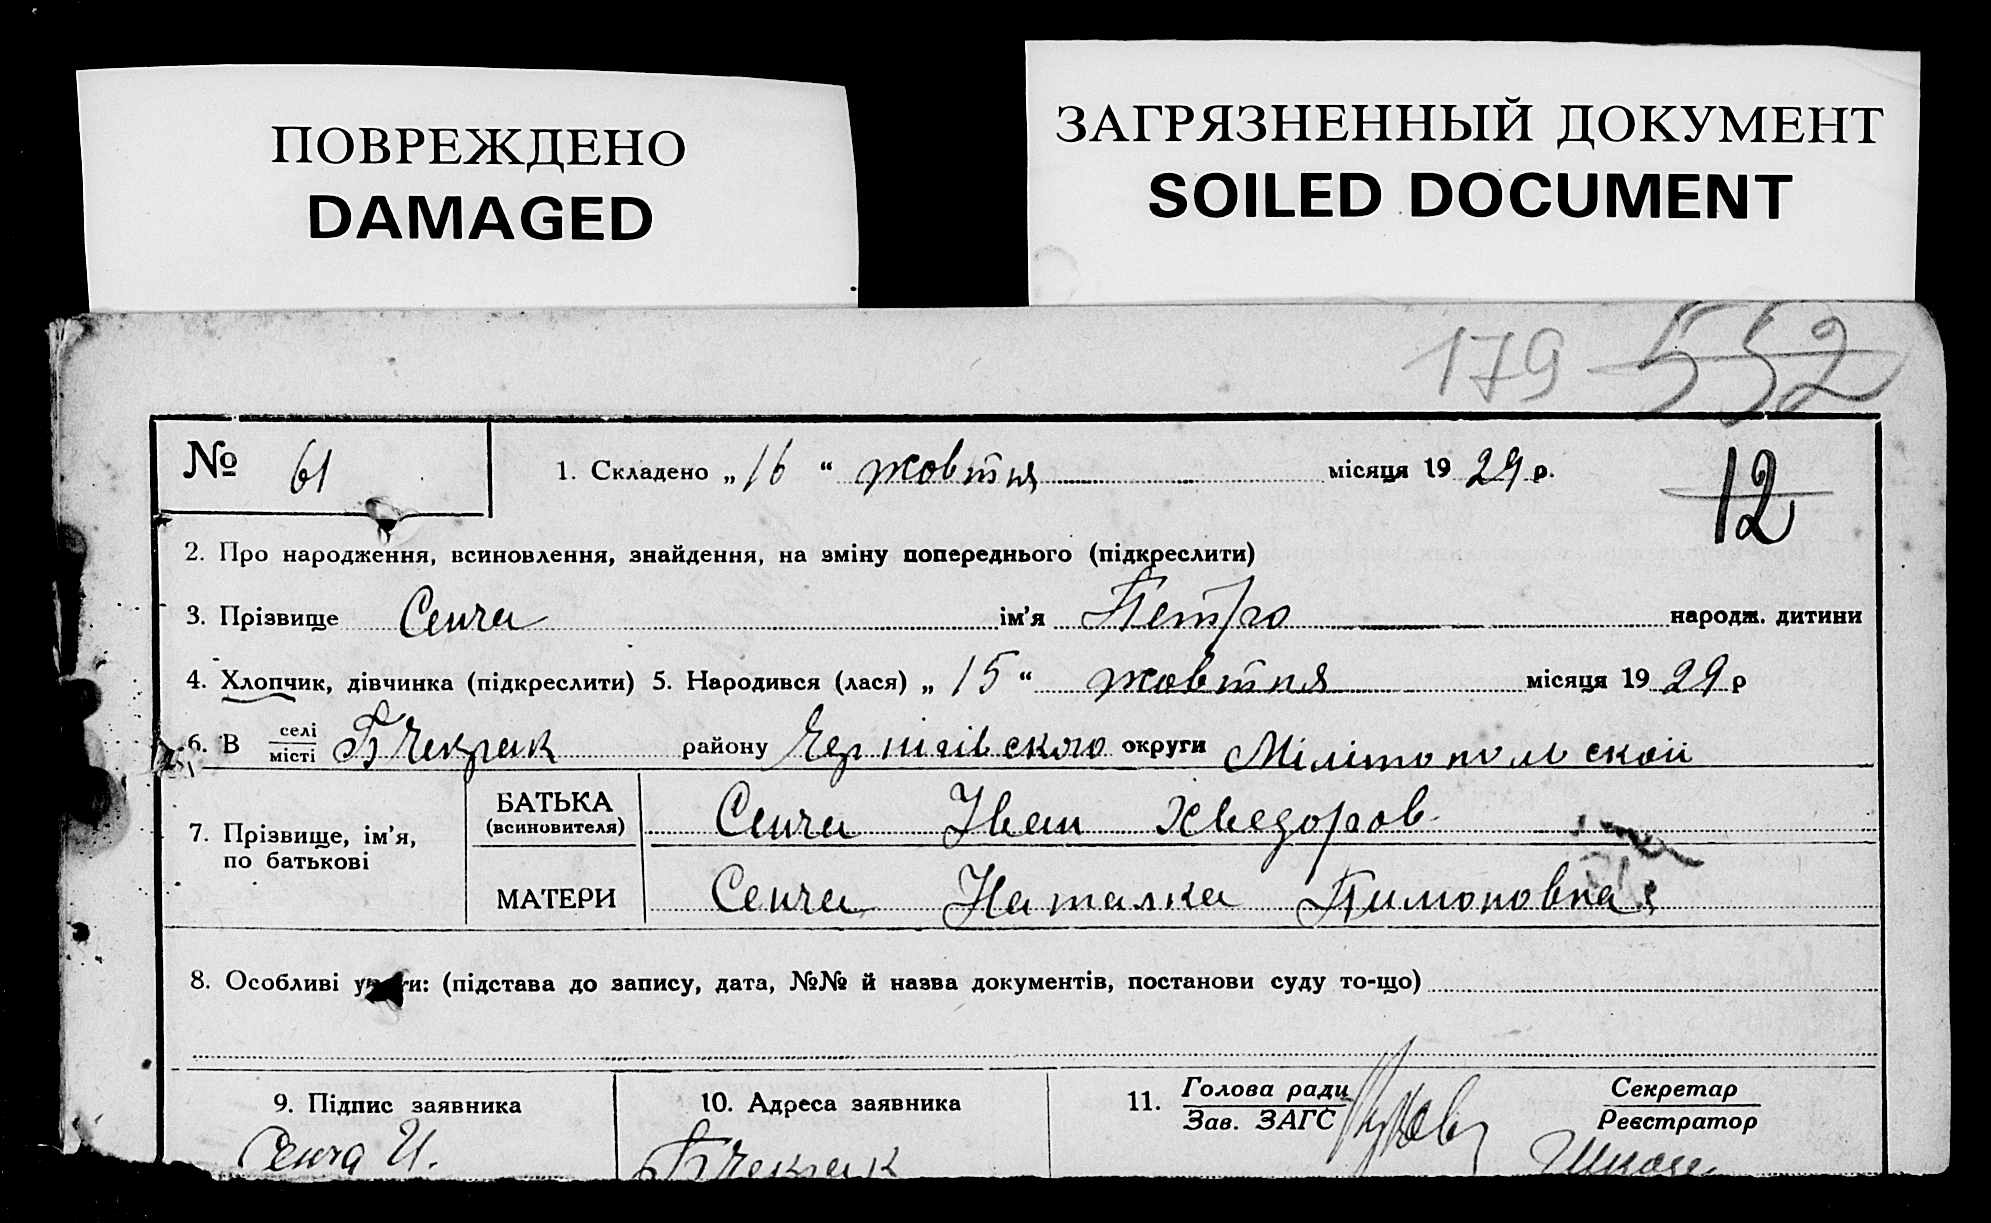 ПОВРЕЖДЕНО
DAMAGED
ЗАГРЯЗНЕННЫЙ ДОКУМЕНТ
SOILED DOCUMENT
179 552
№ 61 1. Складено „16“ жовтня місяця 1929 р. 12
2. Про народження, всиновлення, знайдення, на зміну попереднього (підкреслити)
3. Прізвище Сенча ім’я Петро народж. дитини
4. Хлопчик, дівчинка (підкреслити) 5. Народився (лася) „15“ жовтня місяця 1929 р
6. В селі/місті Б Чекрак району Чернігівского округи Мілітопольской
7. Прізвище, ім’я, по батькові
БАТЬКА (всиновителя) Сенча Іван Хведоров
МАТЕРИ Сенча Наталка Пимоновна
8. Особливі ув ги: (підстава до запису, дата, №№ й назва документів, постанови суду то-що)
9. Підпис заявника 10. Адреса заявника 11. Голова ради/Зав. ЗАГС Секретар/Реєстратор
Сенча И. Б Чекрак